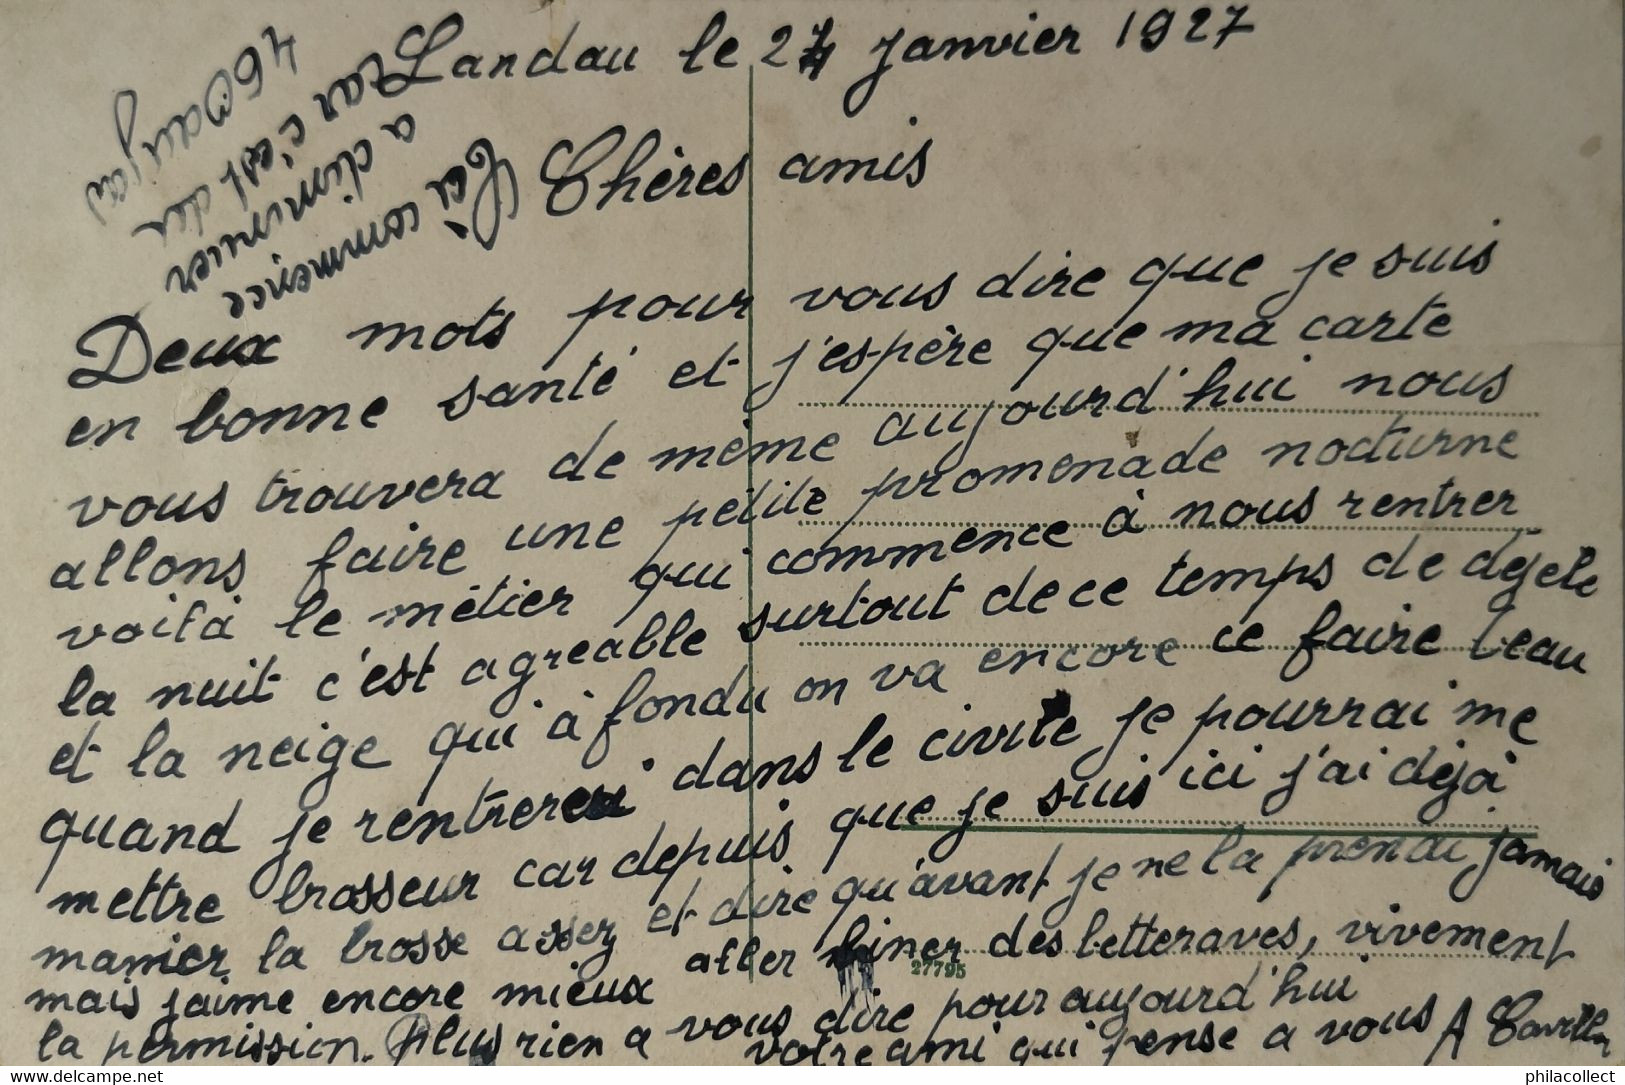 Landau le 24 Janvier 1927
Chères amis
Deux mots pour vous dire que je suis
en bonne santé et j'espère que ma carte
vous trouvera de même aujourd'hui nous
allons faire une petite promenade nocturne
voila le métier qui commence à nous rentrer
la nuit c'est agreable surtout de ce temps de dejele
et la neige qui à fondu on va encore ce faire beau
quand je rentrerei dans le civile je pourrai me
mettre brosseur car depuis que je suis ici j'ai dejà
manier la brosse assez et dire qu'avant je ne la prenai jamais
mais j'aime encore mieux aller biner des betteraves, vivement
la permission. Plus rien a vous dire pour aujourd'hui
votre ami qui pense a vous A
Ça commence
a diminuer
car c'est du
460 au jau
27795
philacollect
https://www.delcampe.net